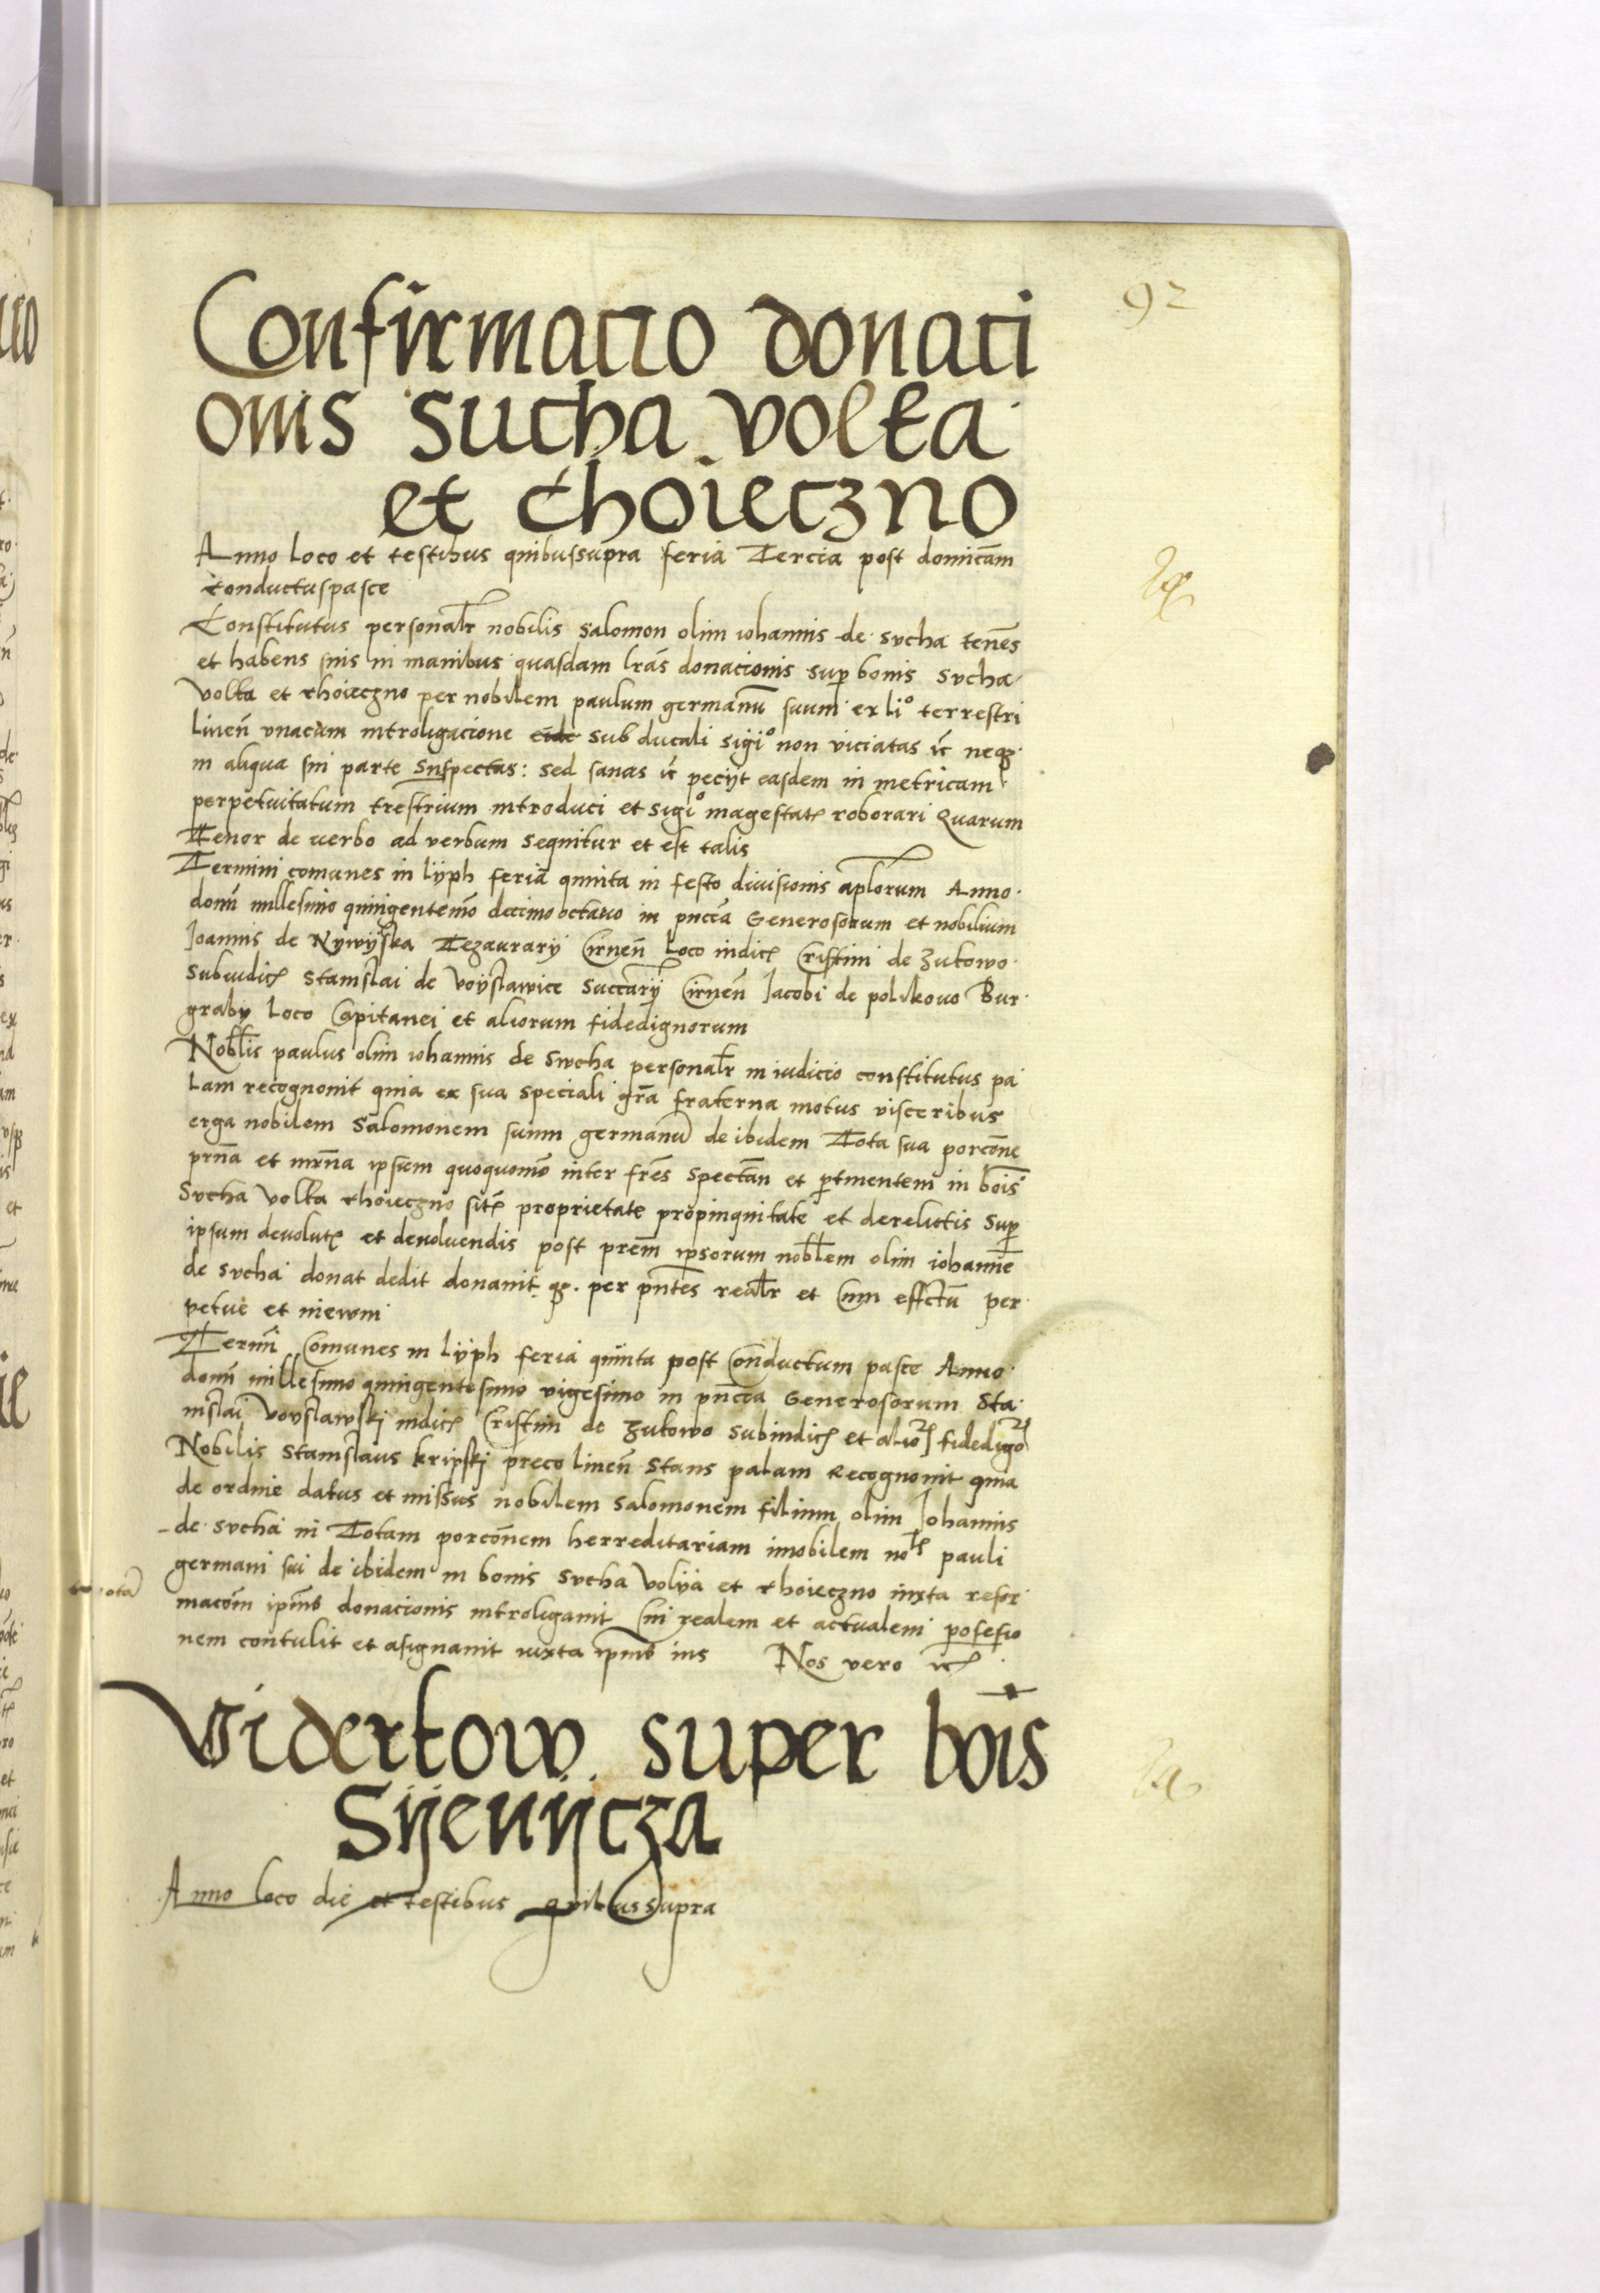 92
Confirmacio donaci
onis sucha volka
et choieczno
Anno loco et testibus quibussupra feria Tercia post domicãm
conductuspasce
Constitutus personalr nobilis salomon olim iohannis de sucha tenẽs
et habens suis in manibus quasdam lrãs donacionis sup bonis sucha
volka et choieczno per nobilem paulum germanũ suum ex liº terrestri
liuen̄ vnacum introligacione eide sub ducali sigiº non viciatas ic̄ neqz
in aliqua sui parte suspectas: sed sanas ic̄ peciit easdem in metricam
perpetuitatum trestrium introduci et sigiº magestatꝭ roborari Quarum
Tenor de verbo ad verbum sequitur et est talis
Termini comunes in lijph feria quinta in festo diuisionis aplorum Anno
domi millesimo quingentemo decimo octauo in pncia Generosorum et nobilium
Joannis de Nywijska Tezaurarij Cirnen̄ loco iudicꝭ Cristini de zukowo
subiudicꝭ stanislai de voyslawice succarij Cirnen̄ Jacobi de polikowo Bur
graby loco Capitanei et aliorum fidedignorum
Noblis paulus olim iohannis de swcha personalr in iudicio constitutus pa
lam recognouit quia ex sua speciali grã fraterna motus visceribus
erga nobilem salomonem suum germanũ de ibidem Tota sua porcõne
prña et mrña ipsum quoquomõ inter frẽs spectan et ptinentem in bois
sucha volka choieczno sitꝭ proprietate propinquitate et derelictis sup
ipsum deuolutꝭ et deuoluendis post prem̄ ipsorum noblem olim iohannẽ
de sucha donat dedit donauit qz. per pntes realr et Cum effctũ per
petue et inewni
Termi Comunes in lijph feria quinta post Conductum pasce Anno
domi millesimo quingentesimo vigesimo in pncia Generosorum sta
nislai voyslawskj iudicꝭ Cristini de zukowo subiudicꝭ et alioꝝ fidedigoꝝ
Nobilis stanislaus kripskj preco liuen̄ stans palam Recognouit quia
de ordine datus et missus nobilem salomonem filium olim Johannis
de sucha in Totam porcõnem herreditariam imobilem nolꝭ pauli
germani sui de ibidem in bonis sucha volya et choieczno iuxta refor
macõm ipm̄t donacionis introligauit Cui realem et actualem posesio
nem contulit et asignauit iuxta ipm̄t ius Nos vero ic̄ꝭ
Vidertkow super bois
Sijenijcza
Anno loco die et testibus quibussupra